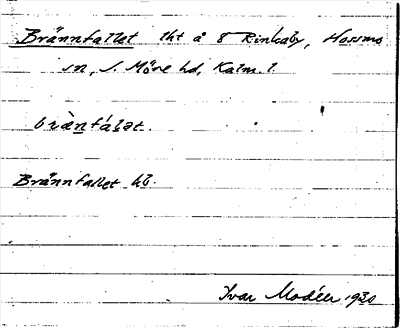 Brännfallet lht å 8 Rinkaby, Hossmo
sn, S. Möre hd, Kalm. l.
brànfálət.
Brännfallet hb.
Ivar Modéer 1930